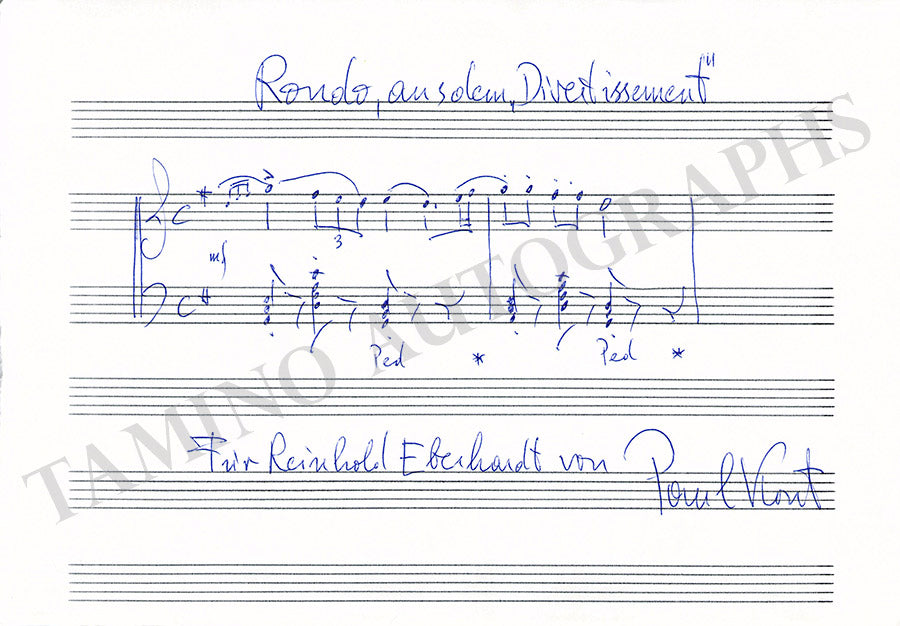 Rondo, aus dem „Divertissement"
3
mf
Ped * Ped *
Für Reinhold Eberhardt von Paul Kont
TAMINO AUTOGRAPHS